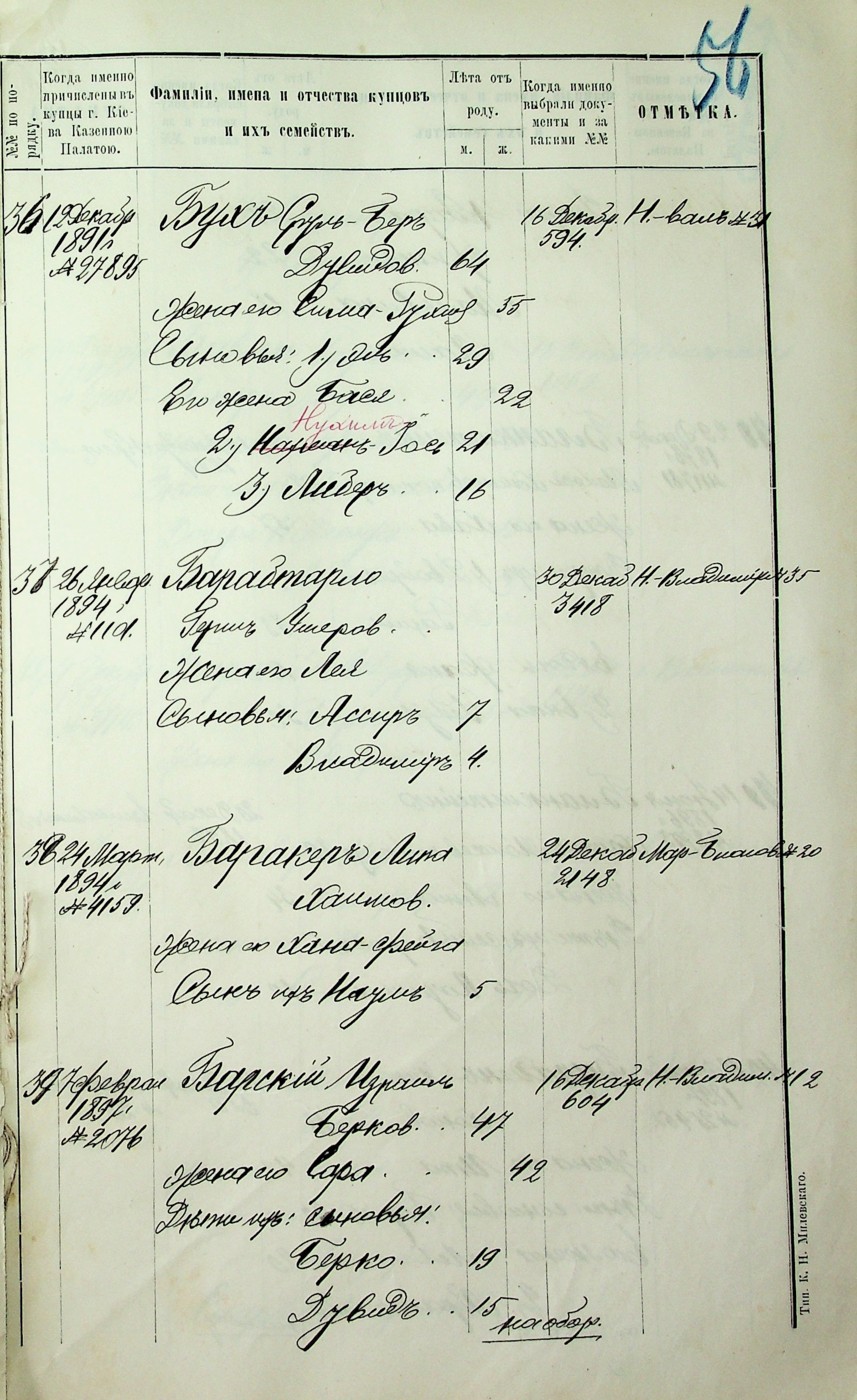 56
№№ по порядку.
Когда именно причислены въ купцы г. Кіева Казенною Палатою.
Фамиліи, имена и отчества купцовъ и ихъ семействъ.
Лѣта отъ роду.
м. ж.
Когда именно выбрали документы и за какими №№
ОТМѢТКА.
36 12 Декабр Бухъ Сруль-Беръ 16 Декабр. Н.-валъ № 31
1891 г 594.
№ 27895 Дувидов. 64
Жена его Сима-Рухля 55
Сыновья: 1.) Эль . . 29
Его жена Бася . 22
Нухимъ
2.) Іось 21
3.) Либеръ . . 16
37 26 Январ Барабтарло 30 Декаб Н.-Владимір № 35
1894 г 3418
№ 1101. Герш Ушеров. .
Жена его Лея
Сыновья: Ассиръ 7
Владиміръ 4.
38 24 Март, Баракеръ Липа 24 Декаб Мар-Благов № 20
1894 г 2148
№ 4159. Хаимов.
Жена его Хана-Фейга
Сынъ ихъ Наумъ 5
39 7 Феврал Барскій Израиль 16 Декабр Н.-Владим. № 12
1897 г. 604
№ 2076 Берков. . 47
Жена его Сара . . 42
Дѣти ихъ: сыновья:
Берко . . 19
Дувидъ . . 15
на обор.
Тип. К. Н. Милевскаго.